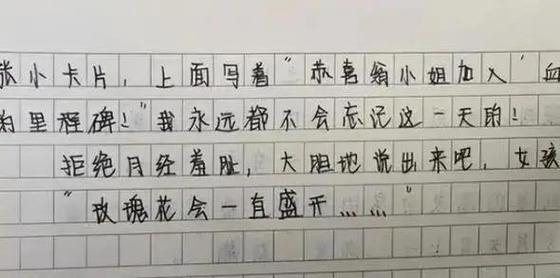 张小卡片，上面写着“恭喜翁小姐加入‘血
的里程碑！”我永远都不会忘记这一天的！
拒绝月经羞耻，大胆地说出来吧，女孩
“玫瑰花会一直盛开……”